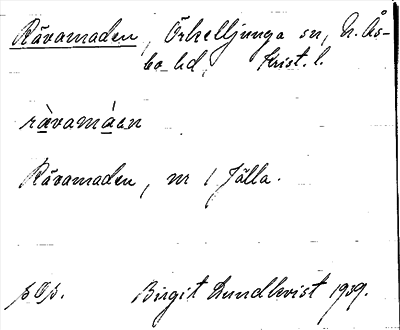 Rävamaden, Örkelljunga sn, N. Ås-
bo hd, Krist. l.
rävamáen
Rävamaden, nr 1 Jälla.
Birgit Lundkvist 1939.